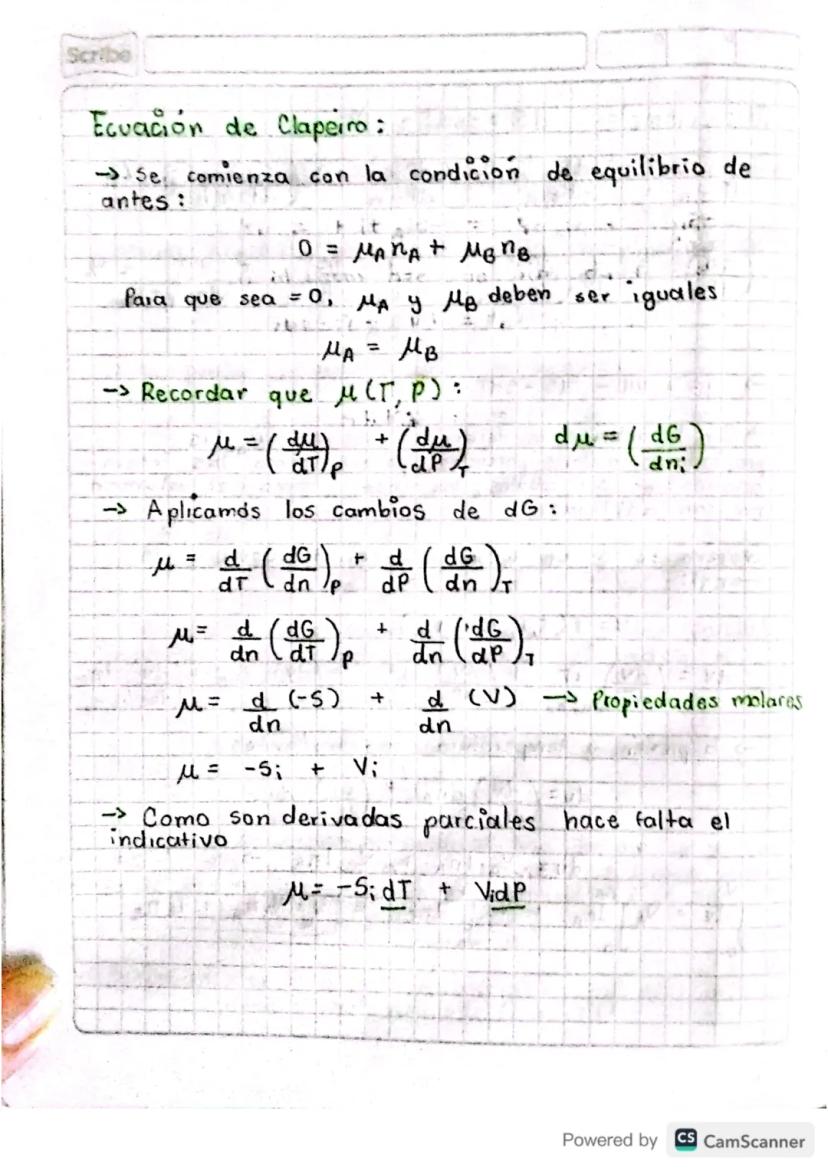 Scribe
Ecuación de Clapeiro:
→ Se comienza con la condición de equilibrio de
antes:
0 = μA nA + μB nB
Para que sea = 0, μA y μB deben ser iguales
μA = μB
→ Recordar que μ(T, P):
μ = (dμ/dT)P + (dμ/dP)T    dμ = (dG/dni)
→ Aplicamos los cambios de dG:
μ = d/dT (dG/dn)P + d/dP (dG/dn)T
μ = d/dn (dG/dT)P + d/dn (dG/dP)T
μ = d/dn (-S) + d/dn (V) → Propiedades molares
μ = -Si + Vi
→ Como son derivadas parciales hace falta el
indicativo
μ = -Si dT + Vi dP
Powered by CS CamScanner